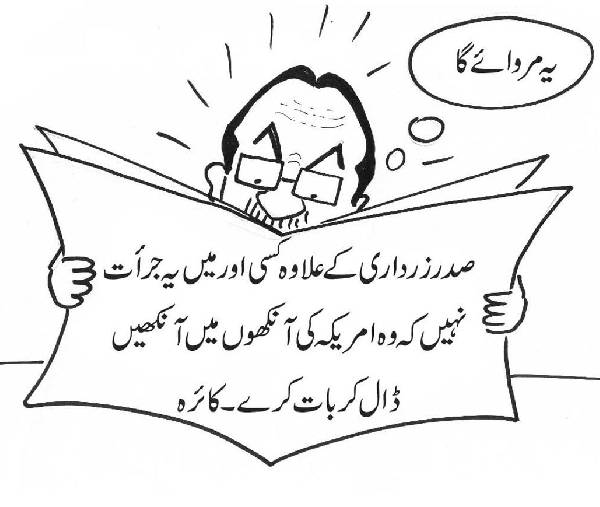 یہ مروائے گا
صدر زرداری کے علاوہ کسی اور میں یہ جرأت
نہیں کہ وہ امریکہ کی آنکھوں میں آنکھیں
ڈال کر بات کرے۔ کائرہ